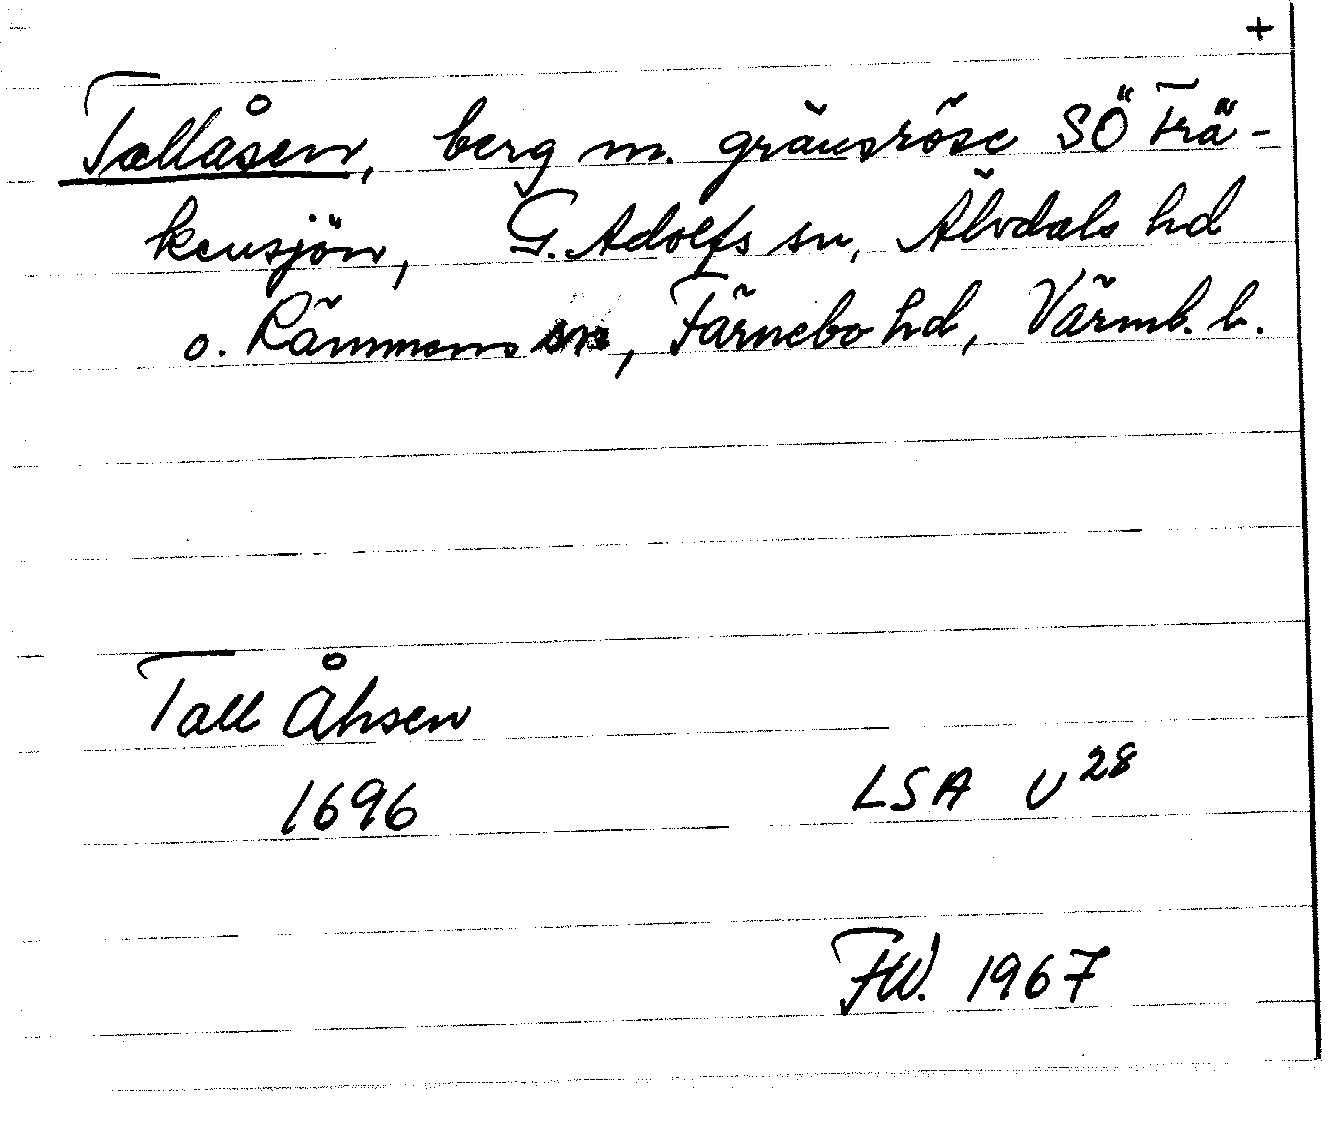 +
Tallåsen, berg m. gränsröse SÖ Trä-
kensjön, G. Adolfs sn, Älvdals hd
o. Rämmens sn, Färnebo hd, Värml. l.
Tall Åhsen
1696 LSA U 28
FW. 1967